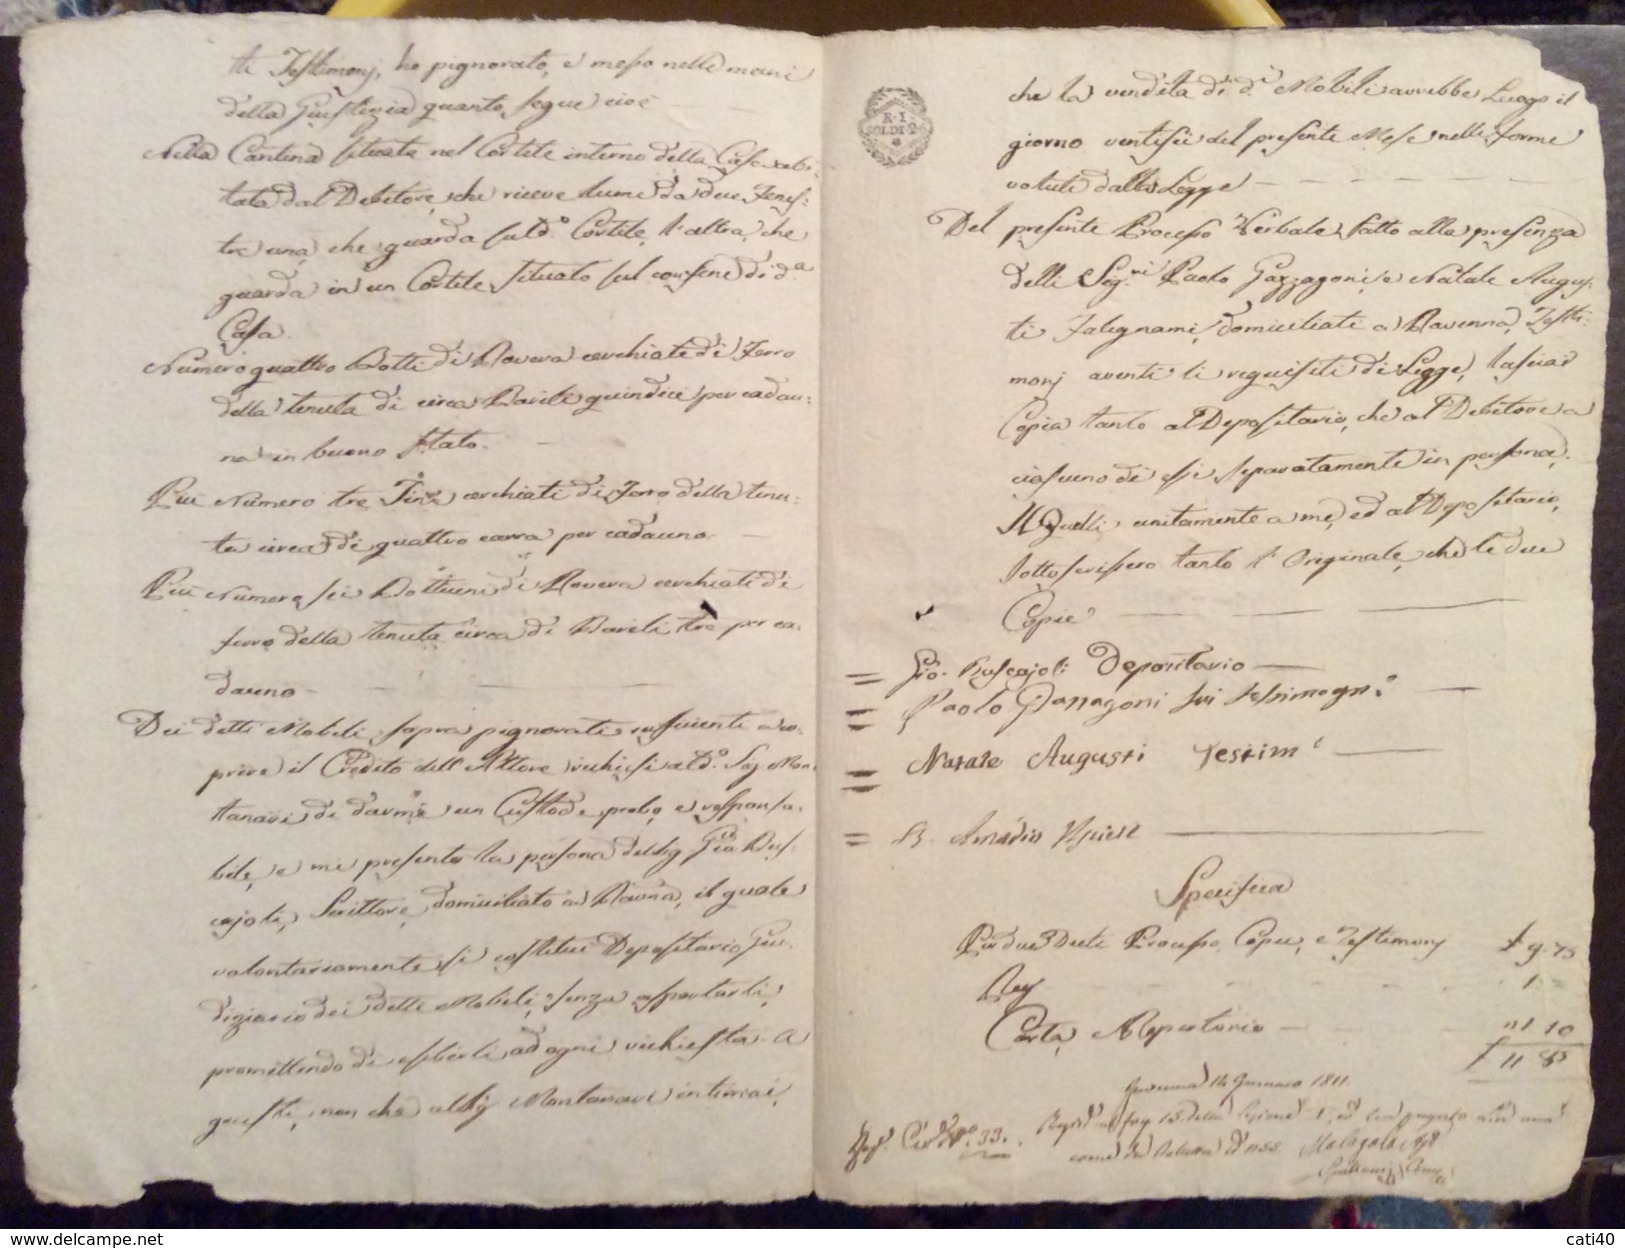 ti Testimonj, ho pignorato, e messo nelle mani
della Giustizia quanto segue cioè
Nella Cantina situata nel Cortile interno della Casa abi-
tata dal Debitore, che riceve lume da due Fenes-
tre una che guarda sul d.° Cortile, l'altra, che
guarda in un Cortile situato sul confine di d.a
Casa.
Numero quattro Botti di Rovera cerchiate di Ferro
della tenuta di circa Barili quindici per cadau-
na in buono stato.
Più Numero tre Tini cerchiati di Ferro della tenu-
ta circa di quattro carra per cadauno.
Più Numero sei Bottieini di Rovera cerchiati di
ferro della tenuta circa di Barili tre per ca-
dauno
Dei detti Mobili sopra pignorati sufficienti a co-
prire il Credito dell'Attore richiesi al d.° Sig Mon-
tanari di darmi un Custode probo, e responsa-
bile, e mi presentò la persona del Sig Gio. Bus-
cajoli, Scrittore, domiciliato a Ravña, il quale
volontariamente si costituì Depositario Giu-
diziario dei detti Mobili, senza asportarli,
promettendo di esibirli ad ogni richiesta. A
questi, non che al Sig Montanari intimai,
R. I
SOLDI 2
che la vendita di d.i Mobili avrebbe Luogo il
giorno ventisei del presente Mese nelle forme
volute dalla Legge
Del presente Processo Verbale fatto alla presenza
delli Seg.ri Paolo Gazzagoni, e Natale Augus-
ti Falegnami, domiciliati a Ravenna, Testi-
monj aventi li requisiti di Legge, lasciai
Copia tanto al Depositario, che al Debitore a
ciascuno di essi separatamente in persona.
Quelli unitamente a me, ed al Depositario,
sottoscrissero tanto l'Originale, che le due
Copie
Gio. Buscajoli Depositario
Paolo Gazzagoni fui testimogni
Natale Augusti testim
B. Amadio Usciere
Specifica
Per due Dieti Processo, Copie, e Testimonj £ 9.75
Reg 1
Carta, e Repertorio " 1 10
£ 11 85
14 Gennaro 1811.